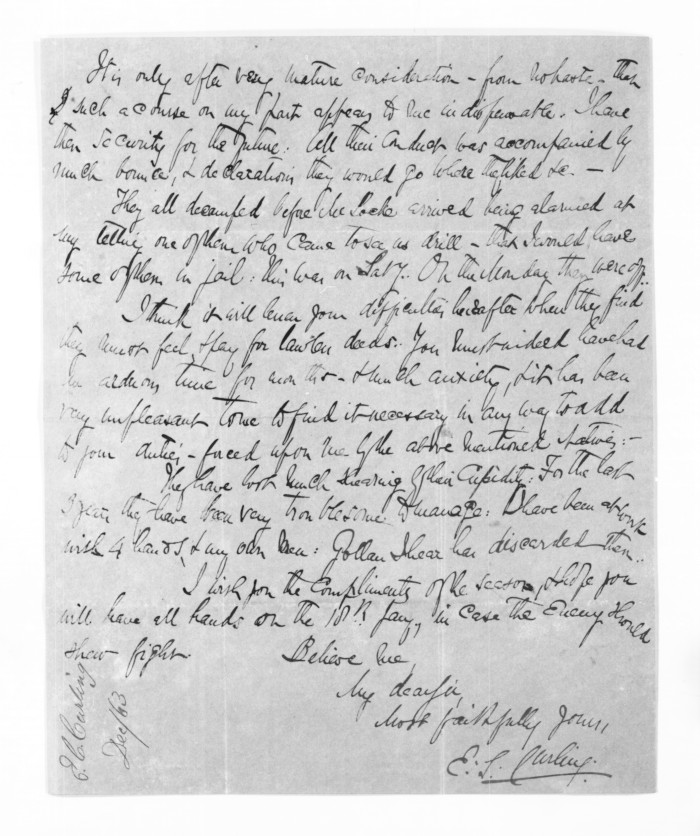 It is only after very mature consideration - from no haste - that
such a course on my part appears to me indispensable. I have
then security for the future: All their conduct was accompanied by
much bounce, & declarations they would go where they liked &c. -
They all decamped before Mr Locke arrived being alarmed at
my telling one of them who came to see us drill - that I would have
some of them in jail: this was on Saty. On the Monday they were off.
I think it will lessen your difficulties hereafter when they find
they must feel, & pay for lawless deeds. You must indeed have had
an arduous time for months - & much anxiety, & it has been
very unpleasant to me to find it necessary in any way to add
to your duties - forced upon me by the above mentioned Natives: -
They have lost much shearing by their Cupidity: For the last
3 years they have been very troublesome to manage: I have been at work
with 4 hands, & my own men: Gollan I hear has discarded them.
I wish you the Compliments of the season, & hope you
will have all hands on the 18th Jany, in case the Enemy should
shew fight.
Believe me,
My dear Sir,
Most faithfully Yours,
E. S. Curling.
E. S. Curling
Dec/63